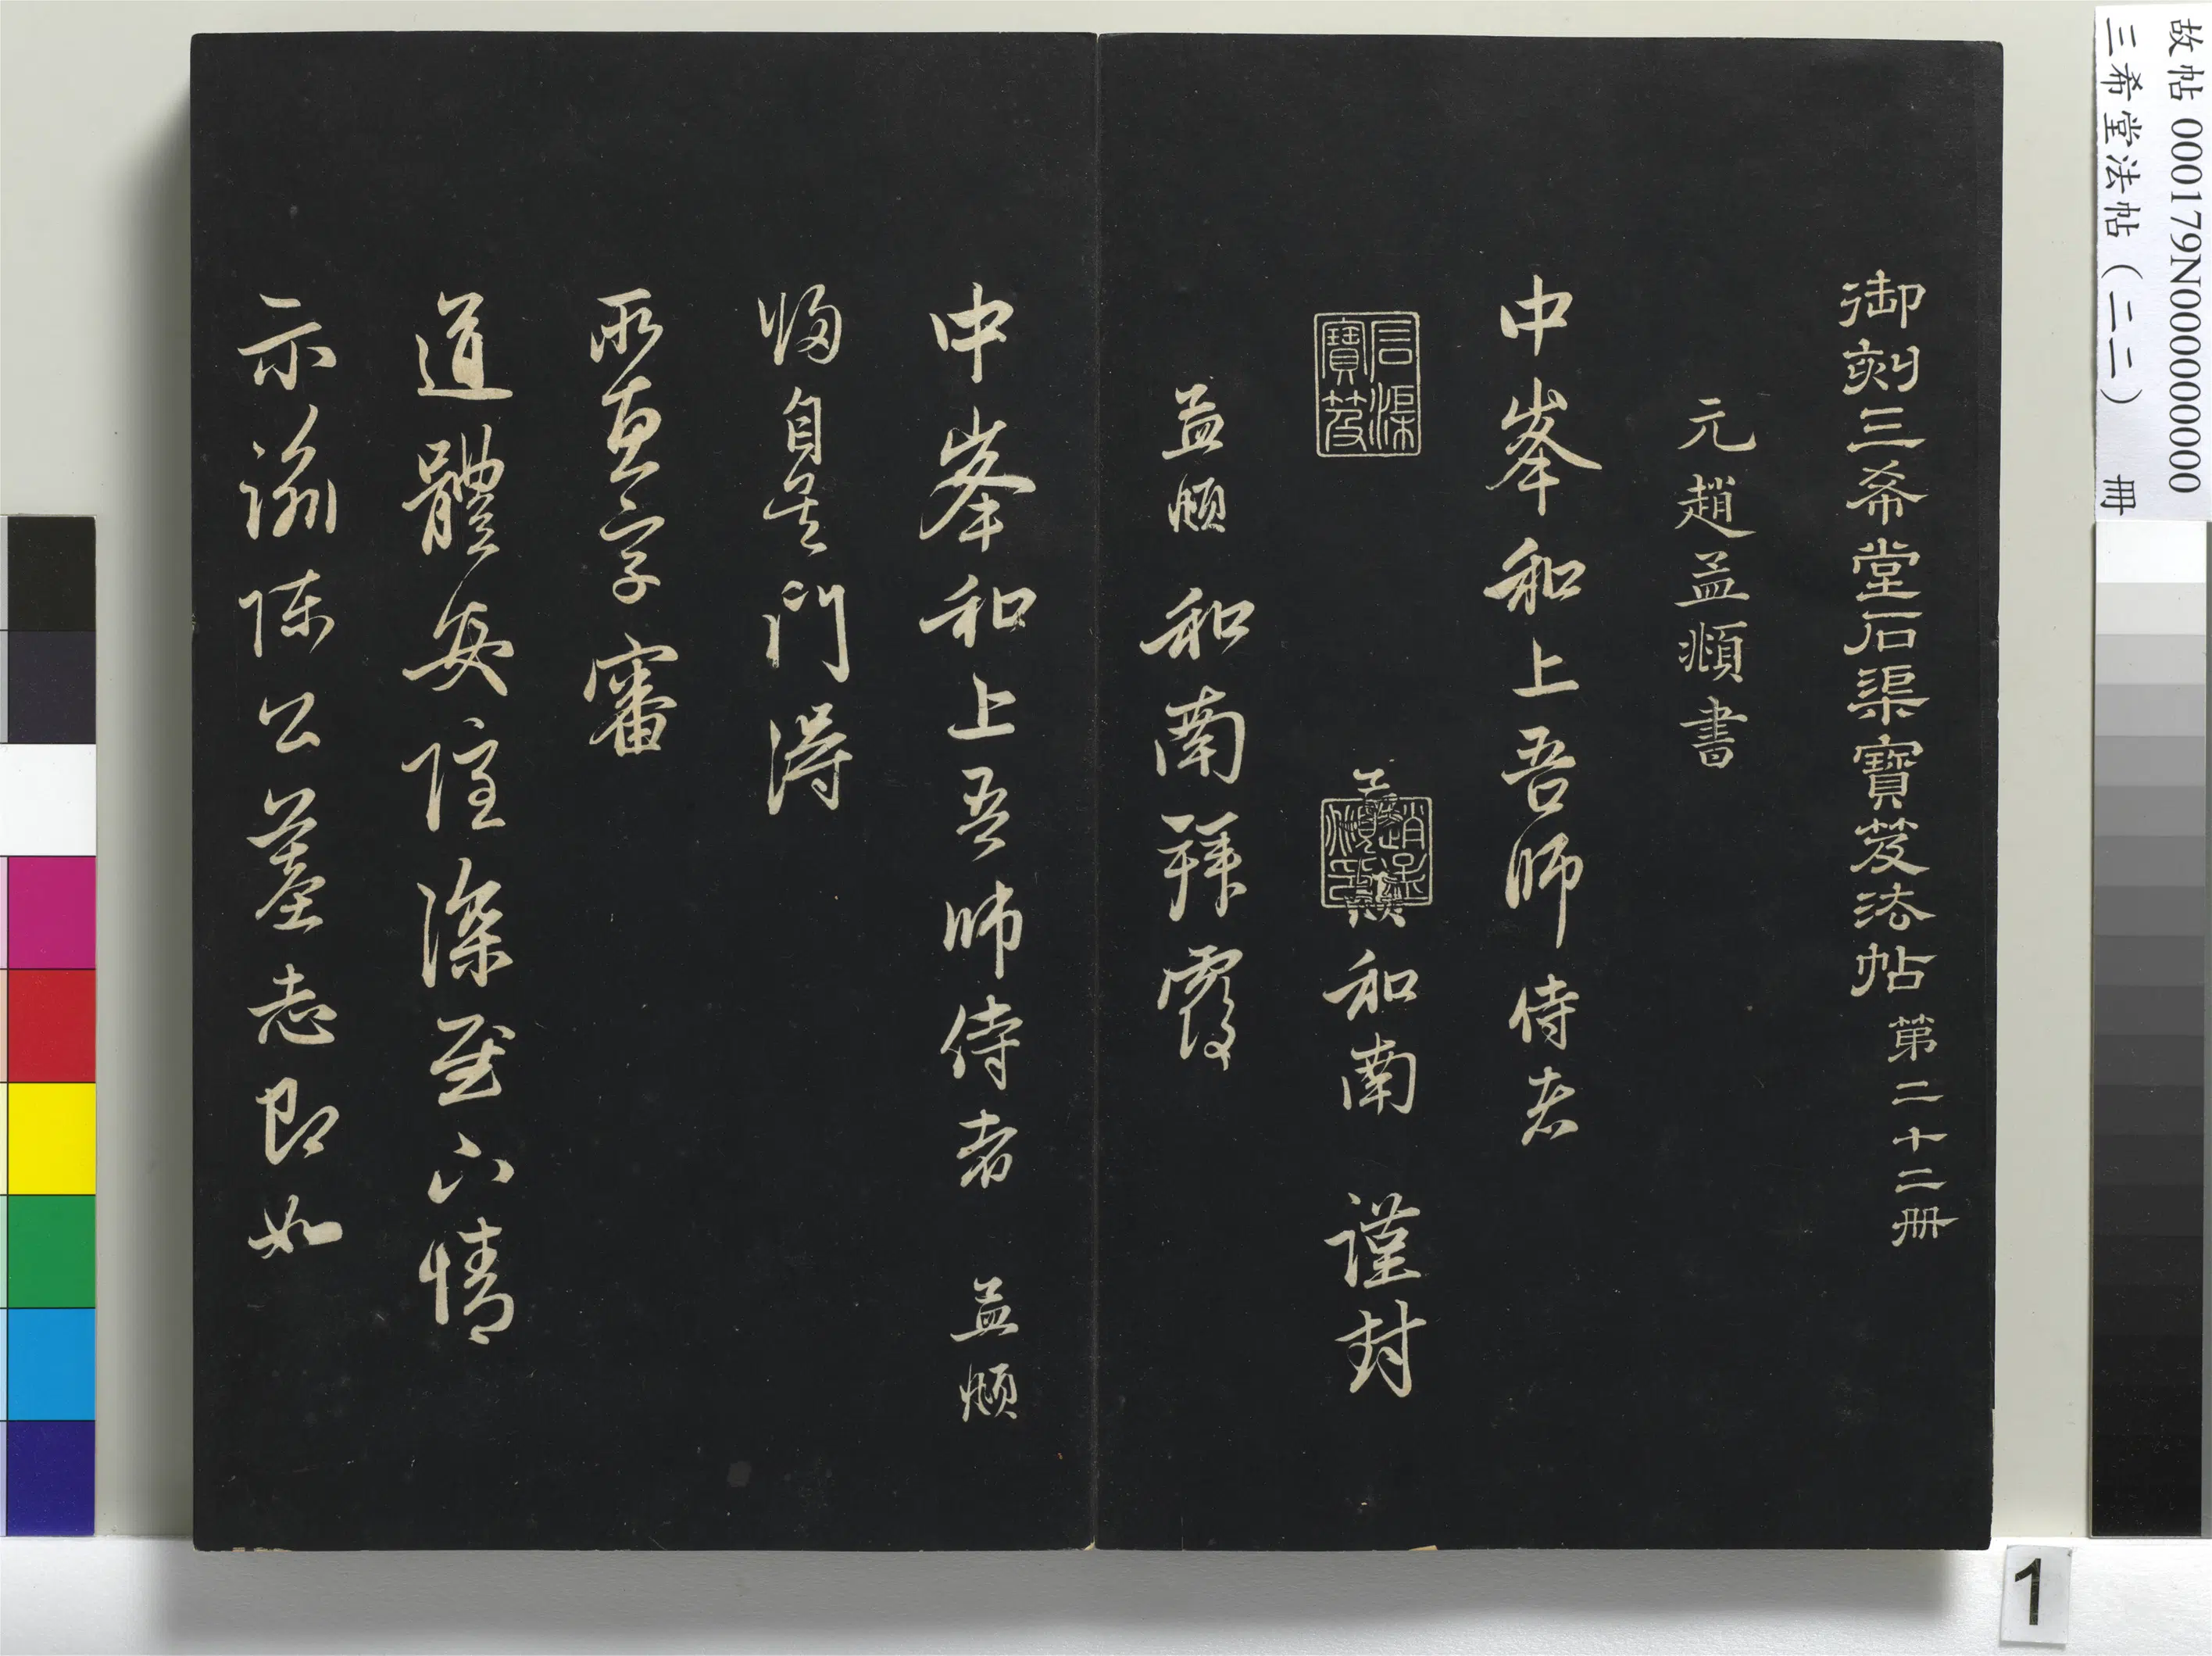 故帖 000179N000000000
三希堂法帖（二二） 冊
御刻三希堂石渠寶笈法帖 第二十二册
元趙孟頫書
中峯和上吾師侍者
石渠寶笈
孟頫和南 謹封
趙孟頫印
孟頫和南拜覆
中峯和上吾師侍者 孟頫
歸自吳門得
所惠字審
道體安隱深慰下情
示諭陳公墓志即如
1